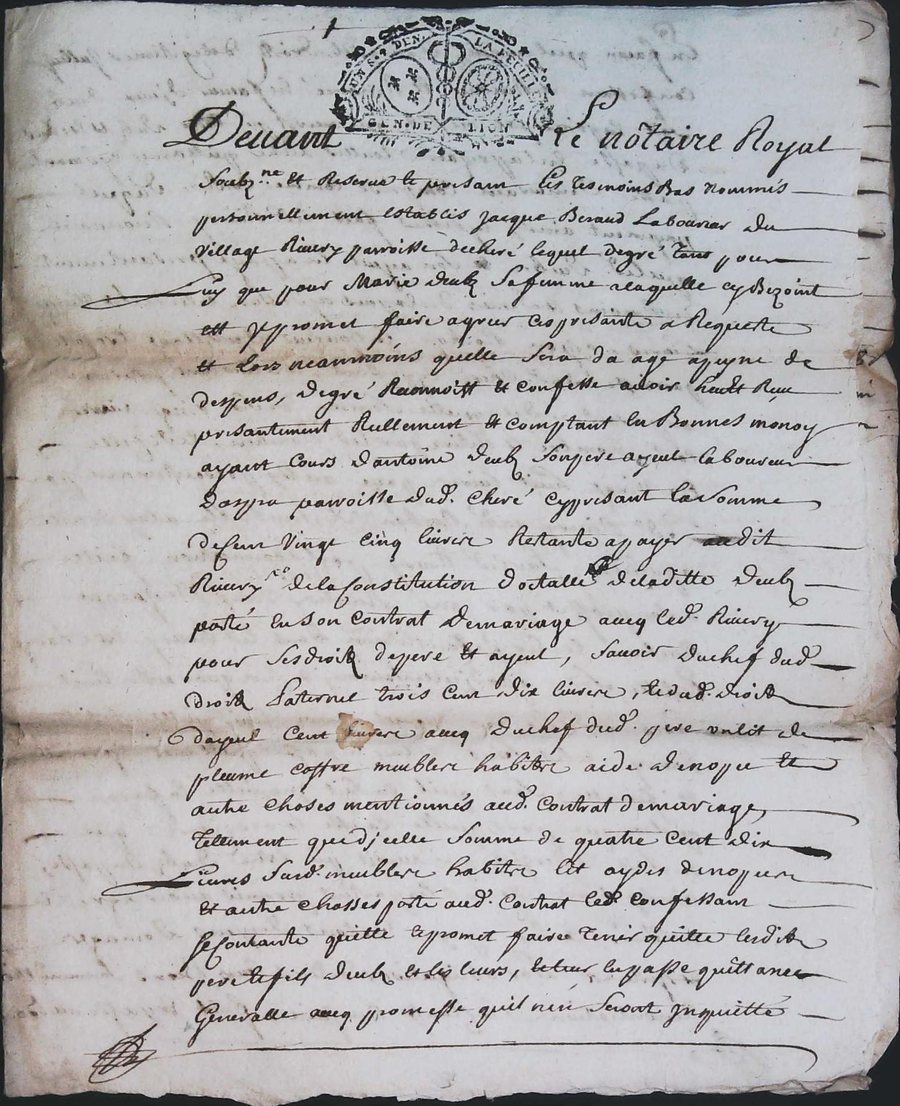 UN S. DEN. LA FEUILLE
GEN. DE LION
Devant Le nôtaire Royal
Soubz.ne et Reservé et presant Les tesmoins Bas nommés
personnellement establis Jacque Beraud Laboureur du
village Rivery parroisse de cheré lequel de gré tant pour
Luy que pour Marie sa femme a laquelle cy Bezoint
et Je promet faire agreer ces presante a Requeste
et Lors neanmoins quelle sera da age a peyne de
despens, de gré Reconnoist et confesse avoir heu et Reu
presantement Rellement et comptant en Bonnes monoy
ayant Cours d'antoine son pere ayeul laboureur
parroisse dud. Cheré cy presant la somme
de Cent Vingt cinq livres Restante a payer audit
Rivery de la Constitution dotalle de laditte
porté en son contrat de mariage avecq led. Rivery
pour ses droits de pere et ayeul, savoir du chef dud.
droit Paternel trois cent dix livres, et dud. droit
dayeul Cent livres avecq du chef dud. pere un lit de
plume coffre meubles habitz aide de nopce et
autre choses mentionnés aud. contrat de mariage,
Tellement que d'jcelle somme de quatre cent dix
Livres Susd. meubles habitz lit aydes de nopces
et autre chosses porté aud. contrat led. confessant
se contante quitte et promet faire tenir quitte lesdits
pere et fils et les leurs, et leur en passe quittance
Generalle avecq promesse qu'il n'en seront Jnquietté